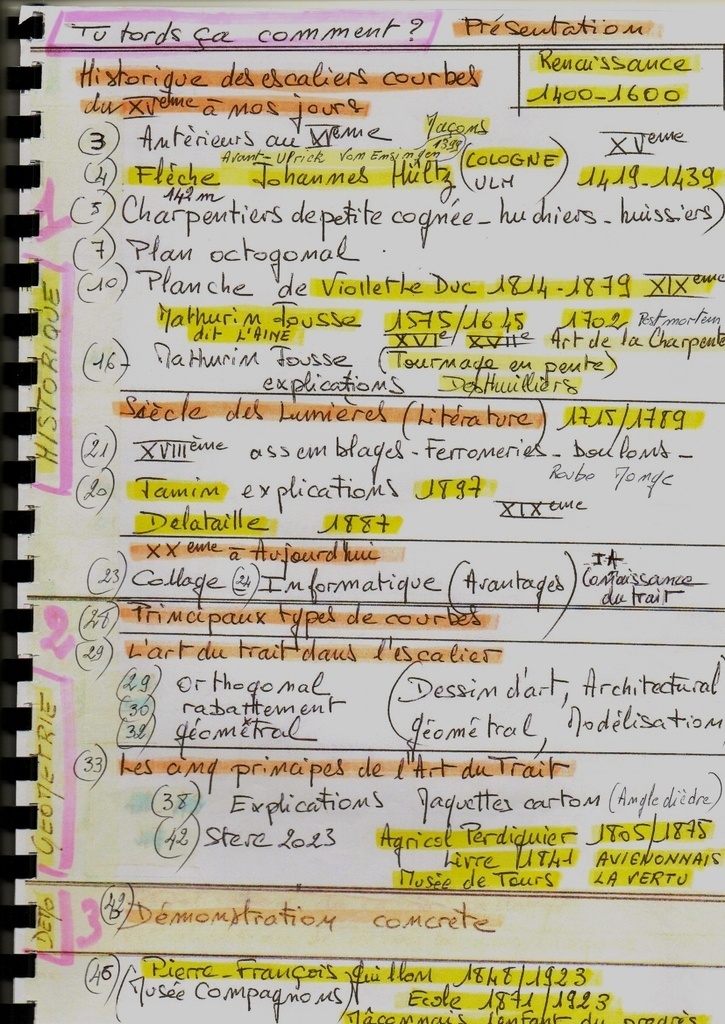 Tu tords ça comment? Présentation
Historique des escaliers courbes
du XVème à nos jours
Renaissance
1400-1600
3 Antérieurs au XVème Maçons XVeme
Avant-Ulrick Von Ensingen 1399
4 Flêche Johannes Hültz (COLOGNE ULM) 1419-1439
142m
5 Charpentiers de petite cognée - huchiers - huissiers)
7 Plan octogonal
10 Planche de Viollet Le Duc 1814-1879 XIXeme
Mathurin Jousse 1575/1645 1702 Post mortem
dit L'AINE XVIe/XVIIe Art de la Charpente
16 Mathurin Jousse (Tournage en pente)
explications Desthuilliers
Siècle des Lumières (Litérature) 1715/1789
21 XVIIIème assemblages - Ferroneries - Boulons -
Roubo Monge
20 Tamin explications 1897
XIXeme
Delataille 1887
XXeme à Aujourd'hui
23 Collage 24 Informatique (Avantages) IA
Connaissance
du trait
28 Principaux types de courbes
29 L'art du trait dans l'escalier
29 orthogonal (Dessin d'art, Architectural
30 rabattement
32 géométral géométral, Modélisation
33 Les cinq principes de l'Art du Trait
38 Explications Maquettes carton (Angle dièdre)
42 Stere 2023 Agricol Perdiguier 1805/1875
Livre 1841 AVIGNONNAIS
Musée de Tours LA VERTU
42 Démonstration concrète
45 Pierre-François Guillon 1848/1923
(Musée Compagnons) Ecole 1871/1923
Mâconnais l'enfant du progrès
1
HISTORIQUE
2
GEOMETRIE
3
DEMO